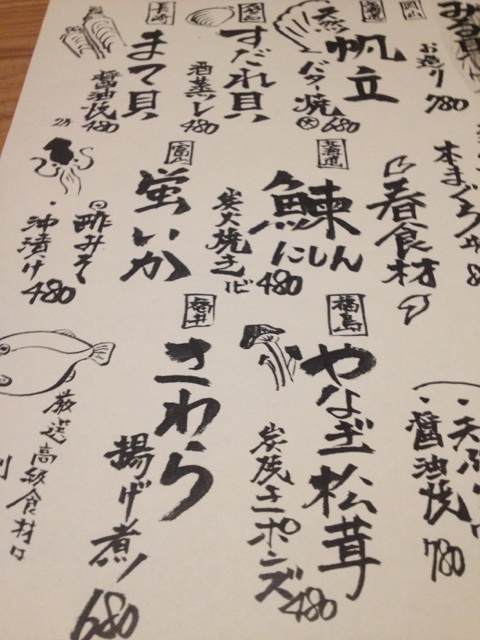 岡山
みる貝
お造り
780
北海道
天然
帆立
バター焼
680
すだれ貝
酒蒸し
480
長崎
まて貝
醤油焼
480
本まぐろ
春食材
北海道
鰊
にしん
炭火焼き
480
富山
蛍いか
酢みそ
・沖漬け
480
・天ぷら
・醤油焼
780
福島
やなぎ松茸
炭焼きポンズ
480
福井
さわら
揚げ煮
680
厳選高級食材は